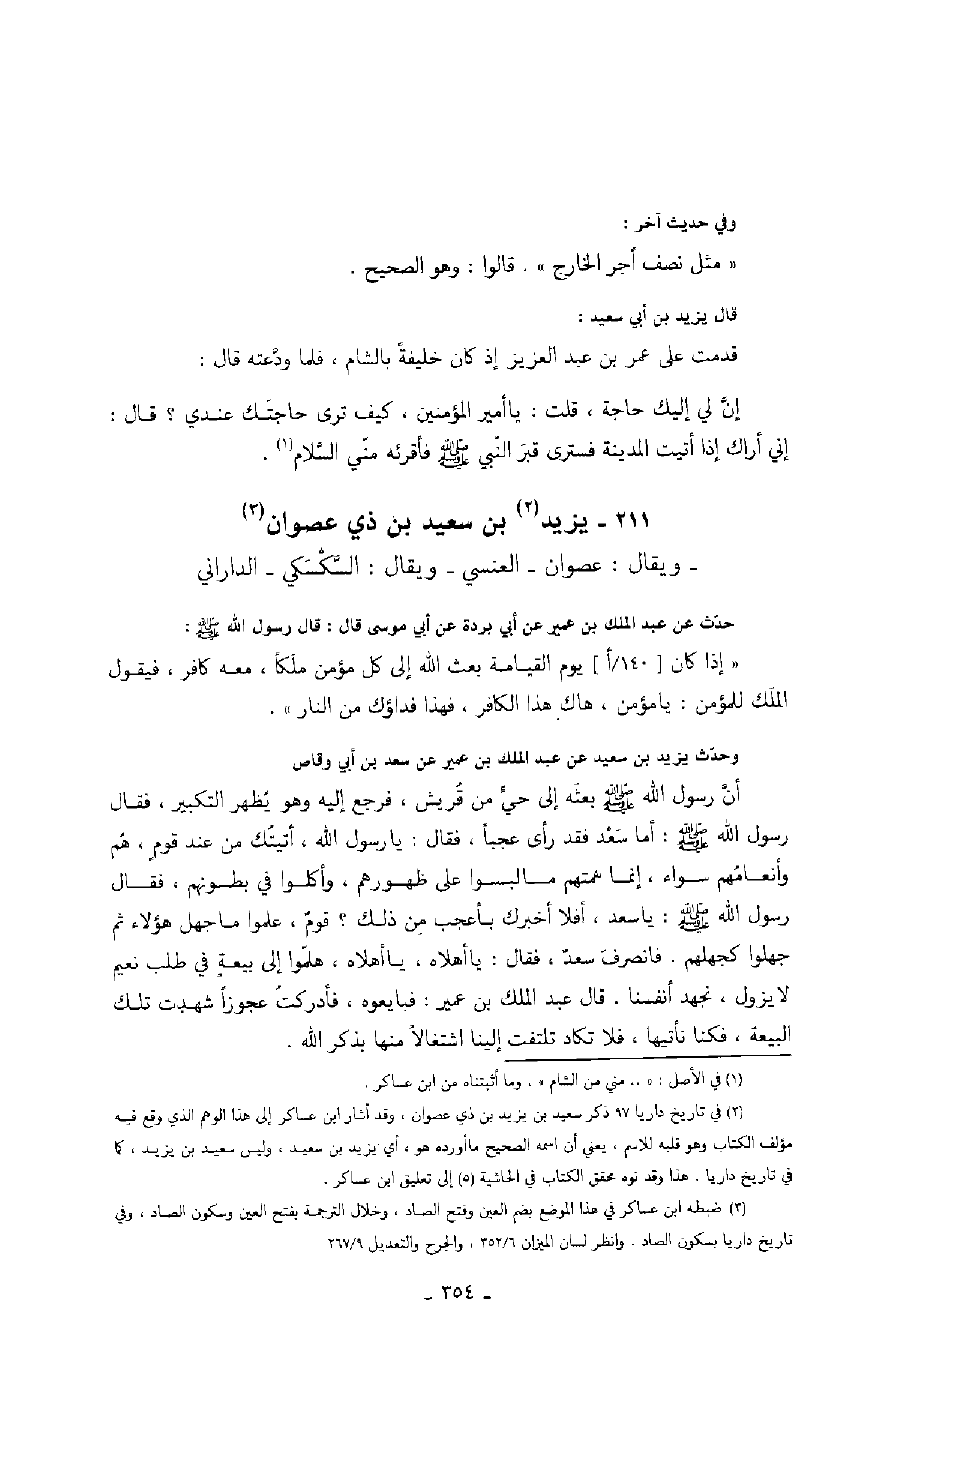 وفي حديث آخر :
« مثل نصف أجر الخارج » . قالوا : وهو الصحيح .
قال يزيد بن أبي سعيد :
قدمت على عمر بن عبد العزيز إذ كان خليفةً بالشام ، فلما ودَّعته قال :
إنَّ لي إليك حاجة ، قلت : ياأمير المؤمنين ، كيف ترى حاجتَـك عنـدي ؟ قـال :
إني أراك إذا أتيت المدينة فسترى قبرَ النّبي ﷺ فأقرئه منّي السَّلام(١) .
٢١١ - يزيد(٢) بن سعيد بن ذي عصوان(٣)
- ويقال : عصوان - العنسي - ويقال : السَّكْسَكي - الداراني
حدّث عن عبد الملك بن عمير عن أبي بردة عن أبي موسى قال : قال رسول الله ﷺ :
« إذا كان [ ١٤٠/أ ] يوم القيـامـة بعث الله إلى كل مؤمن ملَكاً ، معـه كافر ، فيقـول
الملَك للمؤمن : يامؤمن ، هاك هذا الكافر ، فهذا فداؤك من النار » .
وحدّث يزيد بن سعيد عن عبد الملك بن عمير عن سعد بن أبي وقاص
أنَّ رسول الله ﷺ بعثَه إلى حيٍّ من قُريش ، فرجع إليه وهو يُظهر التكبير ، فقـال
رسول الله ﷺ : أما سَعْد فقد رأى عجباً ، فقال : يارسول الله ، أتيتُك من عند قومٍ ، هُم
وأنعـامُهم سـواء ، إنمـا همّتهم مـالبسـوا على ظهـورهم ، وأكلـوا في بطـونهم ، فقـال
رسول الله ﷺ : ياسعد ، أفلا أخبرك بـأعجب مِن ذلـك ؟ قومٌ ، علموا مـاجهل هؤلاء ثم
جهلوا كجهلهم . فانصرفَ سعدٌ ، فقال : ياأهلاه ، يـاأهلاه ، هلمّوا إلى بيعـةٍ في طلب نعيم
لايزول ، نجهد أنفسنا . قال عبد الملك بن عمير : فبايعوه ، فأدركتُ عجوزاً شهـدت تلـك
البيعة ، فكنا نأتيها ، فلا تكاد تلتفت إلينا اشتغالاً منها بذكر الله .
(١) في الأصل : « .. مني من الشام » ، وما أثبتناه من ابن عساكر .
(٢) في تاريخ داريا ٩٧ ذكر سعيد بن يزيد بن ذي عصوان ، وقد أشار ابن عساكر إلى هذا الوهم الذي وقع فيـه
مؤلف الكتاب وهو قلبه للاسم ، يعني أن اسمه الصحيح ماأورده هو ، أي يزيد بن سعيد ، وليس سعيـد بن يزيـد ، كا
في تاريخ داريا . هذا وقد نوه محقق الكتاب في الحاشية (٥) إلى تعليق ابن عساكر .
(٣) ضبطه ابن عساكر في هذا الموضع بضم العين وفتح الصاد ، وخلال الترجمة بفتح العين وسكون الصاد ، وفي
تاريخ داريا بسكون الصاد . وانظر لسان الميزان ٣٥٢/٦ ، والجرح والتعديل ٢٦٧/٩
- ٣٥٤ -